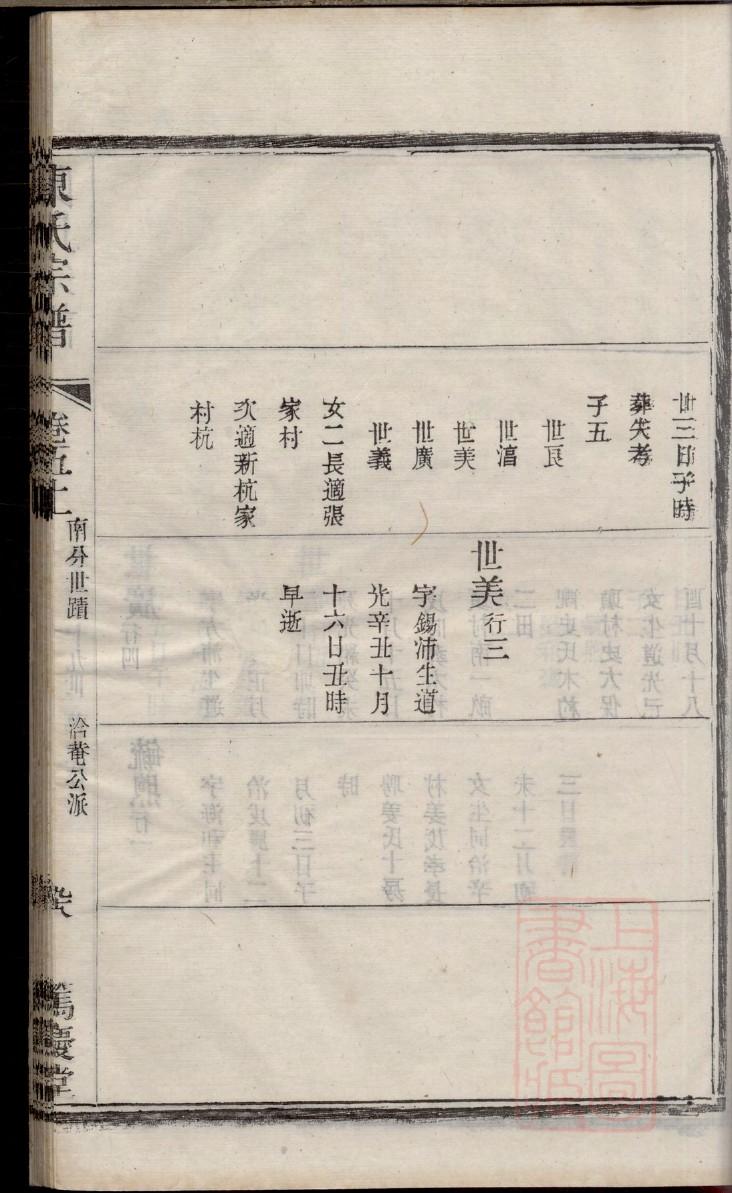 廿三日子時
葬失考
子五
世良
世㵝
世美
世廣
世義
女二長適張
家村
次適新杭家
村杭
世美行三
字錫沛生道
光辛丑十月
十六日丑時
早逝
陳氏宗譜
卷五十
南分世蹟
洽菴公派
篤慶堂
上海圖書館藏